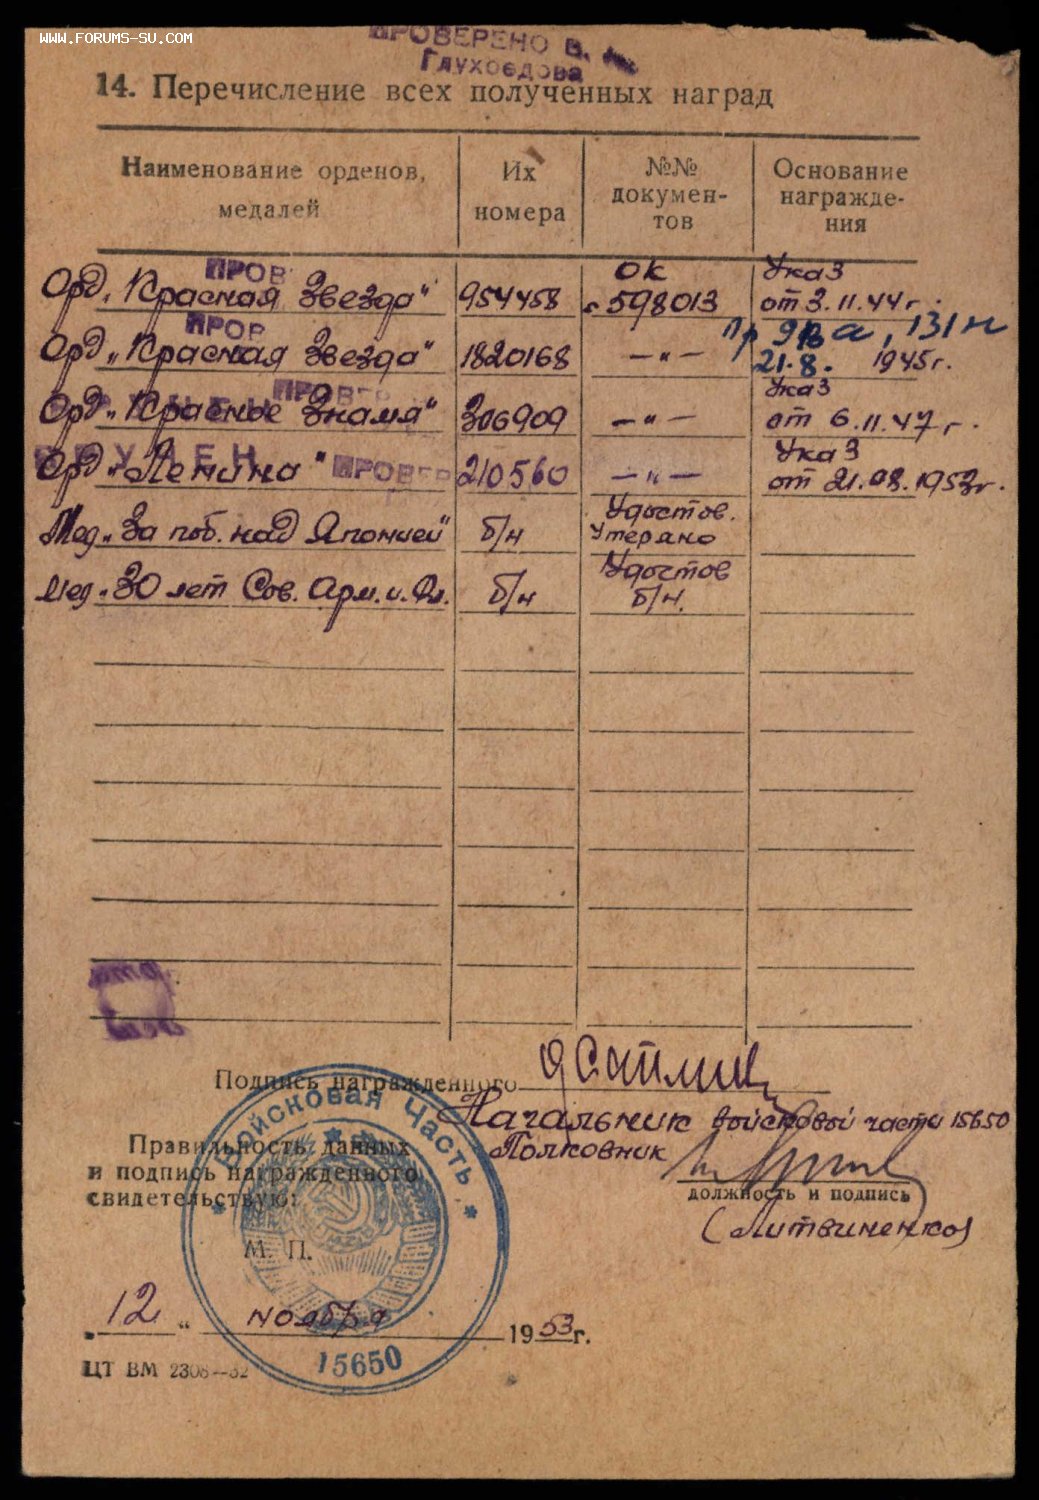 WWW.FORUMS-SU.COM
ПРОВЕРЕНО В.
Глухоедова
14. Перечисление всех полученных наград
Наименование орденов, медалей
Их номера
№№ докумен-тов
Основание награжде-ния
ПРОВ
Орд. „Красная Звезда" 954458 ОК г 598013 Указ от 3.11.44 г.
ПРОВ
Орд „Красная Звезда" 1820168 —"— Пр 9 ВА, 131 н 21.8. 1945 г.
ПРОВЕР
Орд „Красное Знамя" 306909 —"— Указ от 6.11.47 г.
ВРУЧЕН
ПРОВЕР
Орд „Ленина" 210560 —"— Указ от 21.08.1953 г.
Мед „За поб. над Японией" б/н Удостов. Утеряно
Мед „30 лет Сов. Арм. и Фл. б/н Удостов б/н.
Подпись награжденного
Начальник войсковой части 15650
Полковник
Правильность данных
и подпись награжденного
свидетельствую:
должность и подпись
(Литвиненко)
М. П.
Войсковая часть
15650
„12" ноября 1953 г.
ЦТ ВМ 2308—52